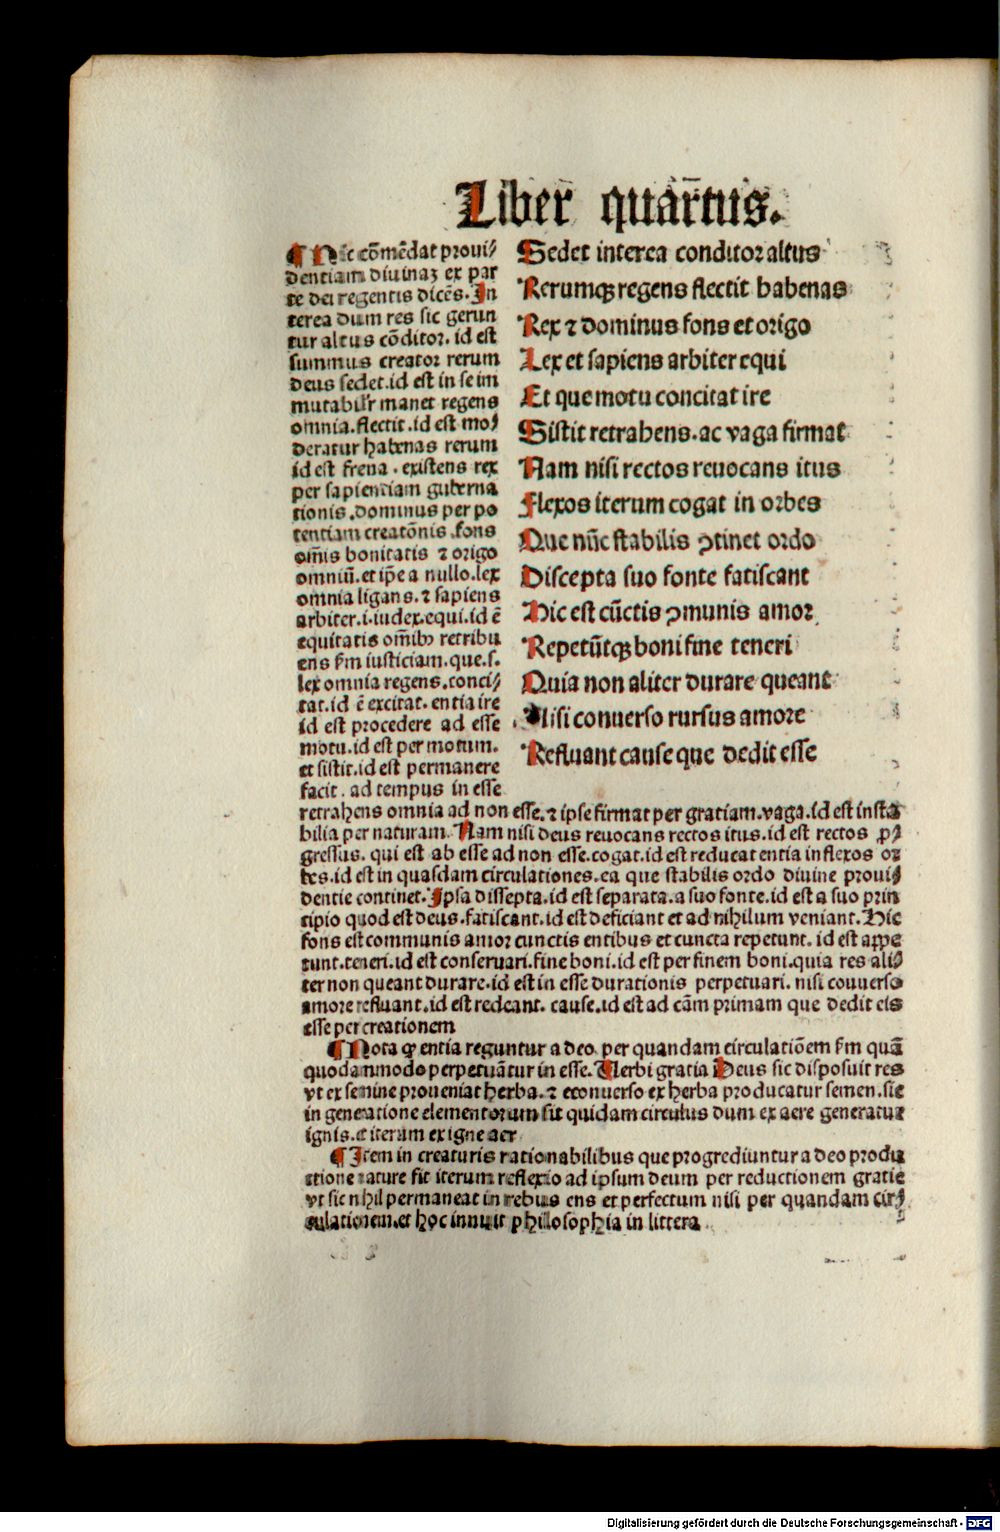 Liber quartus.
¶ Hic cōmēdat proui⸗
dentiam diuinaꝫ ex par
te dei regentis dicēs. In
terea dum res sic gerun
tur altus cōditor. id est
summus creator rerum
deus sedet. id est in se im
mutabilr̄ manet regens
omnia. flectit. id est mo⸗
deratur habenas rerum
id est frena . existens rex
per sapientiam guberna
tionis .dominus per po
tentiam creatōnis .fons
om̄is bonitatis ⁊ origo
omniū. et ip̄e a nullo. lex
omnia ligans. ⁊ sapiens
arbiter. i. iudex. equi. id ē
equitatis om̄ibꝰ retribu
ens ẜm iusticiam. que. s.
lex omnia regens. conci⸗
tat. id ē excitat. entia ire
id est procedere ad esse
motu. id est per motum.
et sistit. id est permanere
facit . ad tempus in esse
Sedet interea conditor altus
Rerumqꝫ regens flectit habenas
Rex ⁊ dominus fons et origo
Lex et sapiens arbiter equi
Et que motu concitat ire
Sistit retrahens. ac vaga firmat
Nam nisi rectos reuocans itus
Flexos iterum cogat in orbes
Que nūc stabilis ꝯtinet ordo
Discepta suo fonte fatiscant
Hic est cūctis ꝯmunis amor
Repetūtqꝫ boni fine teneri
Quia non aliter durare queant
Nisi conuerso rursus amore
Refluant cause que dedit esse
retrahens omnia ad non esse. ⁊ ipse firmat per gratiam. vaga. id est insta
bilia per naturam. Nam nisi deus reuocans rectos itus. id est rectos ꝓ⸗
gressus. qui est ab esse ad non esse. cogat. id est reducat entia in flexos or
bes. id est in quasdam circulationes. ea que stabilis ordo diuine proui⸗
dentie continet. Ipsa dissepta. id est separata. a suo fonte. id est a suo prin
cipio quod est deus. fatiscant. id est deficiant et ad nihilum veniant. Hic
fons est communis amor cunctis entibus et cuncta repetunt. id est aꝑpe
tunt. teneri. id est conseruari. fine boni. id est per finem boni. quia res ali⸗
ter non queant durare. id est in esse durationis perpetuari. nisi couuerso
amore refluant. id est redeant. cause. id est ad cām primam que dedit eis
esse per creationem
¶ Nota ꝙ entia reguntur a deo per quandam circulatiōem ẜm quā
quodammodo perpetuātur in esse. Uerbi gratia Deus sic disposuit res
vt ex semine proueniat herba. ⁊ econuerso ex herba producatur semen. sic
in generatione elementorum sit quidam circulus dum ex aere generatur
ignis. et iterum ex igne aer
¶ Item in creaturis rationabilibus que progrediuntur a deo produ
ctione nature fit iterum reflexio ad ipsum deum per reductionem gratie
vt sic nihil permaneat in rebus ens et perfectum nisi per quandam cir⸗
culationem. et hoc innuit philosophia in littera .
Digitalisierung gefördert durch die Deutsche Forschungsgemeinschaft - DFG